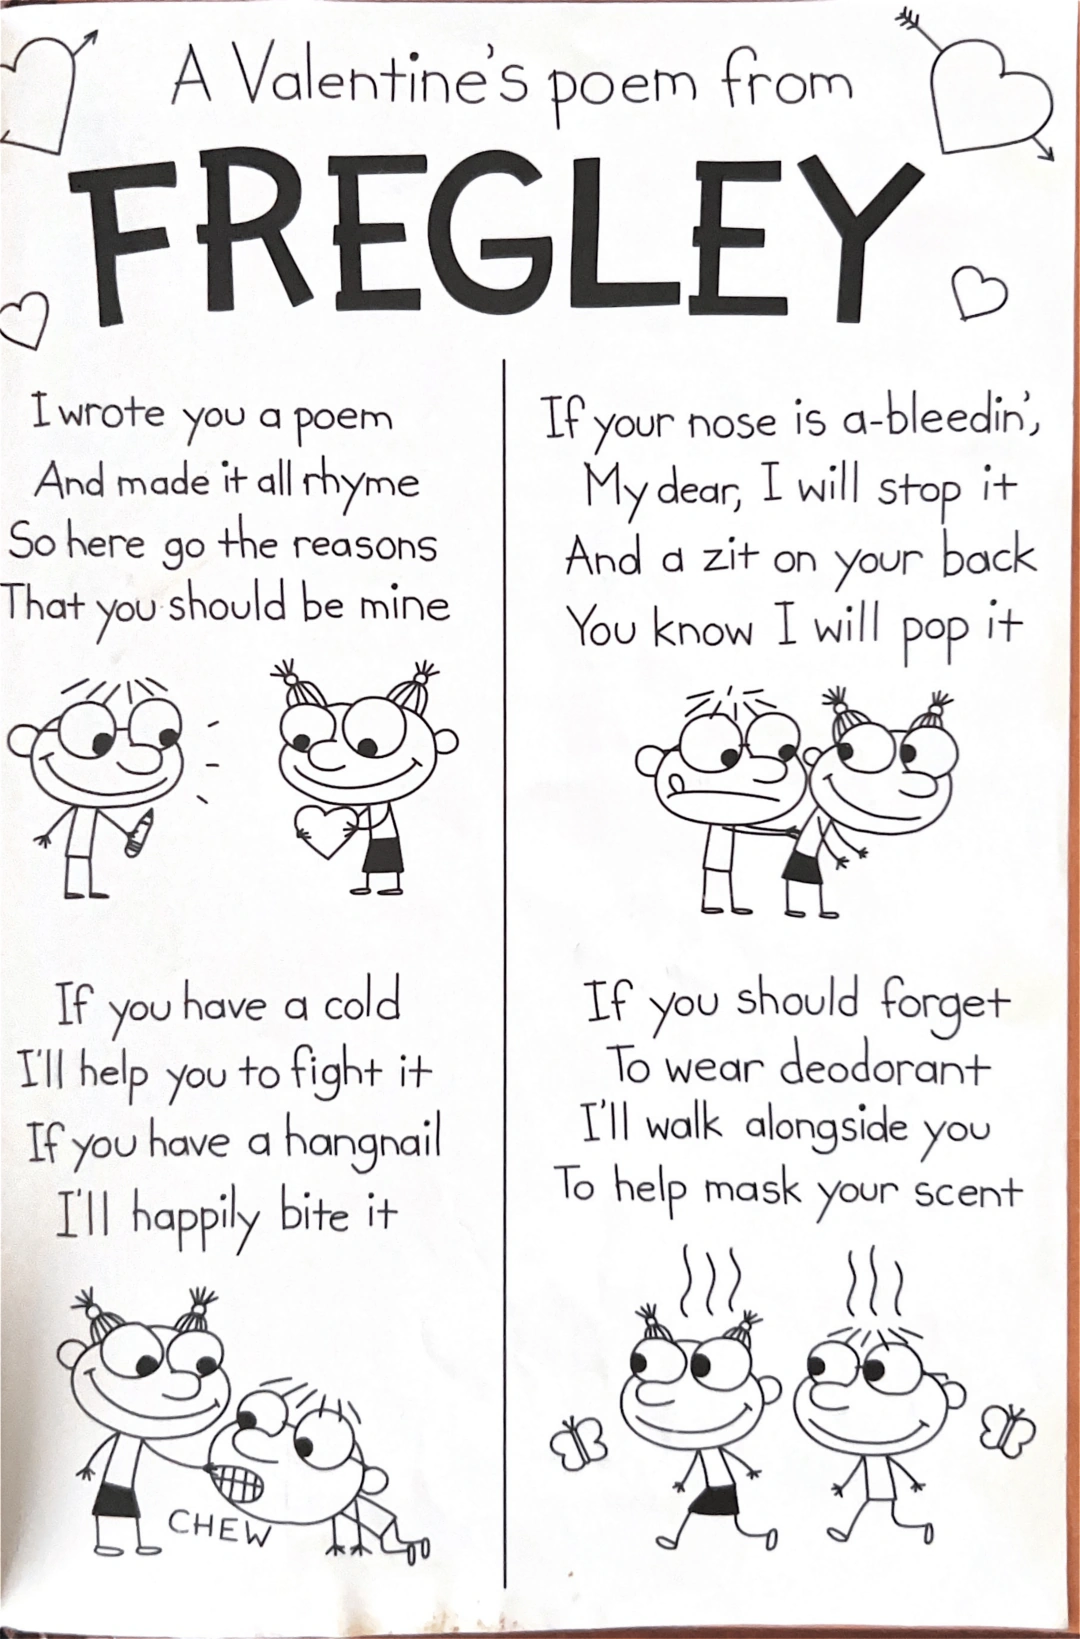 A Valentine's poem from
FREGLEY
I wrote you a poem
And made it all rhyme
So here go the reasons
That you should be mine
If you have a cold
I'll help you to fight it
If you have a hangnail
I'll happily bite it
CHEW
If your nose is a-bleedin',
My dear, I will stop it
And a zit on your back
You know I will pop it
If you should forget
To wear deodorant
I'll walk alongside you
To help mask your scent